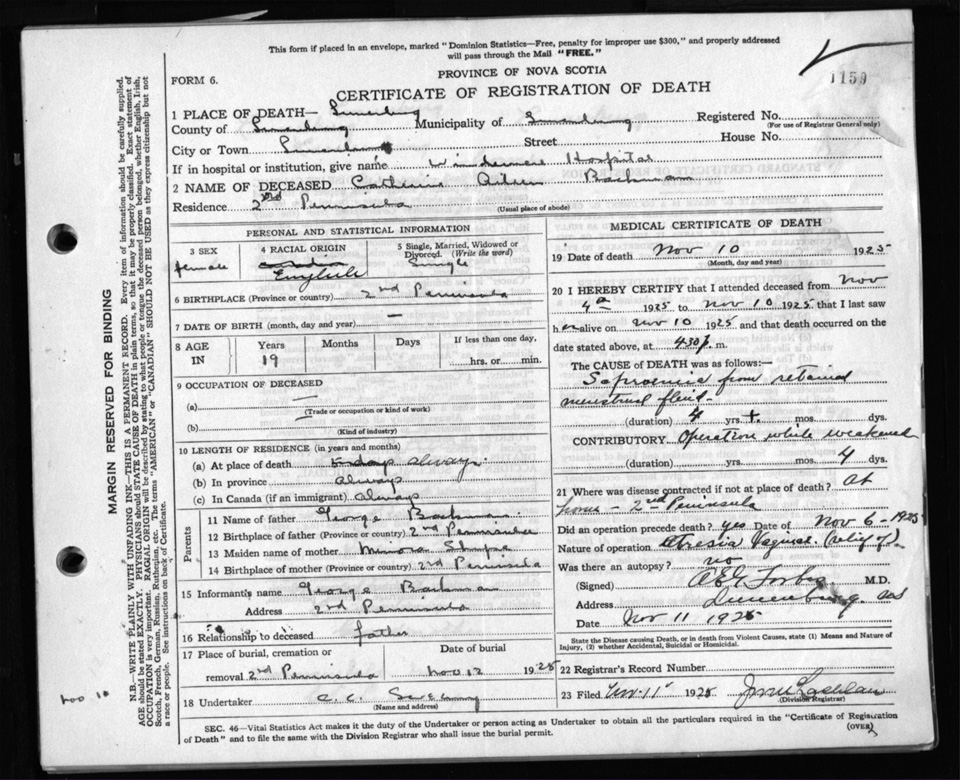 This form if placed in an envelope, marked "Dominion Statistics—Free, penalty for improper use $300," and properly addressed
will pass through the Mail "FREE."
1159
PROVINCE OF NOVA SCOTIA
FORM 6.
CERTIFICATE OF REGISTRATION OF DEATH
1 PLACE OF DEATH— Lunenburg
County of Lunenburg Municipality of Lunenburg Registered No.
(For use of Registrar General only)
City or Town Lunenburg Street House No.
If in hospital or institution, give name Windermere Hospital
2 NAME OF DECEASED Catherine Bachman
Residence 2nd Peninsula
(Usual place of abode)
PERSONAL AND STATISTICAL INFORMATION
3 SEX 4 RACIAL ORIGIN 5 Single, Married, Widowed or Divorced. (Write the word)
female Canadian English Single
6 BIRTHPLACE (Province or country) 2nd Peninsula
7 DATE OF BIRTH (month, day and year) —
8 AGE IN Years Months Days If less than one day,
19 hrs. or min.
9 OCCUPATION OF DECEASED
(a) —
(Trade or occupation or kind of work)
(b)
(Kind of industry)
10 LENGTH OF RESIDENCE (in years and months)
(a) At place of death always
(b) In province always
(c) In Canada (if an immigrant) always
Parents
11 Name of father George Bachman
12 Birthplace of father (Province or country) 2nd Peninsula
13 Maiden name of mother
14 Birthplace of mother (Province or country) 2nd Peninsula
15 Informant's name George Bachman
Address 2nd Peninsula
16 Relationship to deceased father
17 Place of burial, cremation or
removal 2nd Peninsula Nov 12 1925
18 Undertaker C. C.
(Name and address)
MEDICAL CERTIFICATE OF DEATH
19 Date of death Nov 10 1925
(Month, day and year)
20 I HEREBY CERTIFY that I attended deceased from Nov
4th 1925 to Nov 10 1925 that I last saw
her alive on Nov 10 1925 and that death occurred on the
date stated above, at 430 p. m.
The CAUSE OF DEATH was as follows:—
Sapraemia from retained
menstrual fluid.
(duration) 4 yrs. + mos. dys.
CONTRIBUTORY Operation while weakened
(duration) yrs. mos. 4 dys.
21 Where was disease contracted if not at place of death? At
home - 2nd Peninsula
Did an operation precede death? yes Date of Nov 6 - 1925
Nature of operation atresia Vaginae (relief of)
Was there an autopsy? no
(Signed) Forbes M.D.
Address Lunenburg. NS
Date Nov 11 1925
State the Disease causing Death, or in death from Violent Causes, state (1) Means and Nature of
Injury, (2) whether Accidental, Suicidal or Homicidal.
22 Registrar's Record Number
23 Filed Nov 11 1925
(Division Registrar)
SEC. 46—Vital Statistics Act makes it the duty of the Undertaker or person acting as Undertaker to obtain all the particulars required in the "Certificate of Registration
of Death" and to file the same with the Division Registrar who shall issue the burial permit.
(OVER)
MARGIN RESERVED FOR BINDING
N.B.—WRITE PLAINLY WITH UNFADING INK—THIS IS A PERMANENT RECORD. Every item of information should be carefully supplied.
AGE should be stated EXACTLY. PHYSICIANS should STATE CAUSE OF DEATH in plain terms, so that it may be properly classified. Exact statement of
OCCUPATION is very important. RACIAL ORIGIN will be described by stating to what people or tongue the deceased person belonged, whether English, Irish,
Scotch, French, German, Russian, Ruthenian, etc. The terms "AMERICAN" or "CANADIAN" SHOULD NOT BE USED as they express citizenship but not
a race or people. See instructions on back of Certificate.